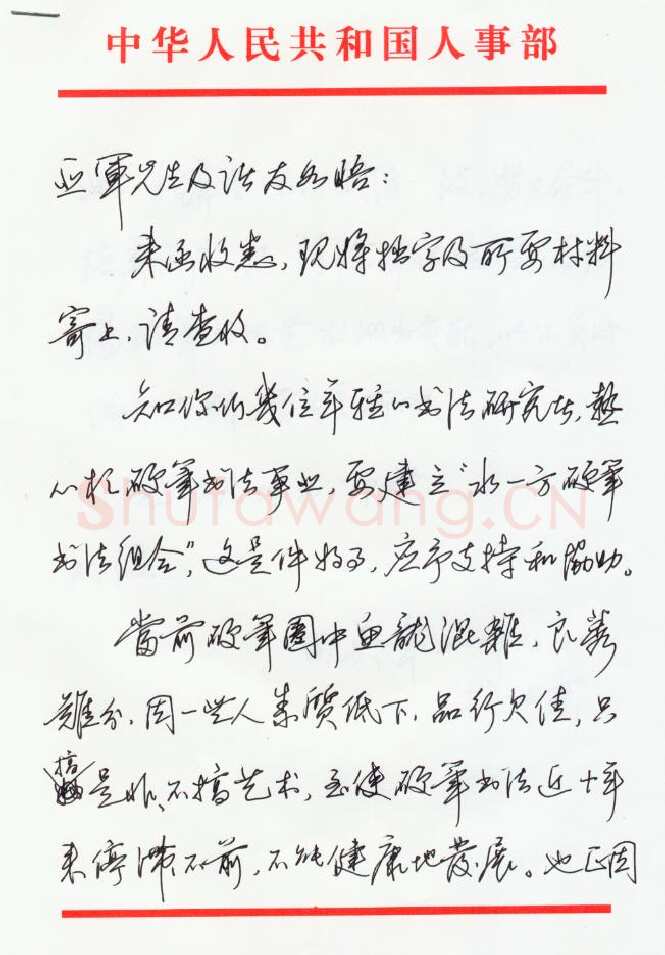 中华人民共和国人事部
亚軍先生及诸友如晤：
来函收悉，现将拙字及所要材料
寄上，请查收。
知你们幾位年轻的书法研究者，热
心於硬筆书法事业，要建立“水一方硬筆
书法组合”，这是件好事，应予支持和協助。
當前硬筆圈中鱼龍混雜，良莠
難分，因一些人素質低下，品行欠佳，只
搞是非、不搞艺术，至使硬筆书法近十年
来停滞不前，不能健康地發展。也正因
Shufawang.CN